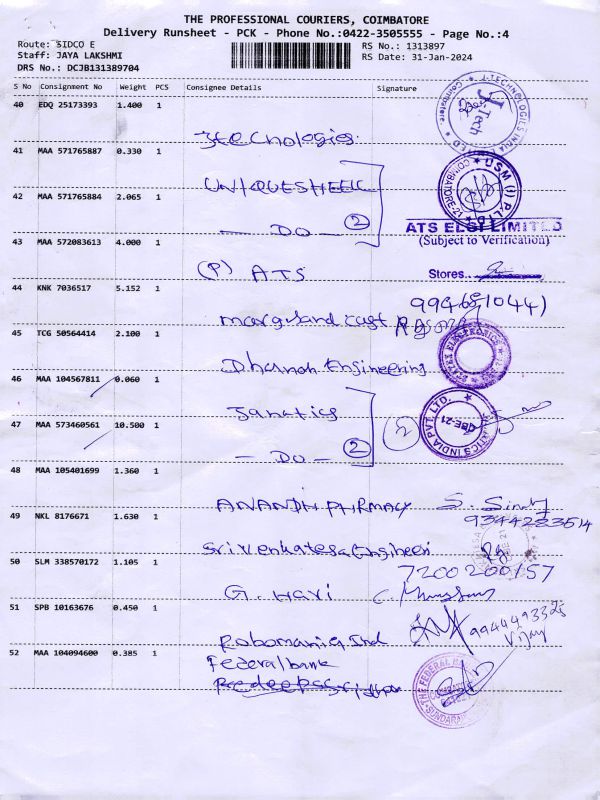 THE PROFESSIONAL COURIERS, COIMBATORE
Delivery Runsheet - PCK - Phone No.:0422-3505555 - Page No.:4
Route: SIDCO E
Staff: JAYA LAKSHMI
DRS No.: DCJB131389704
RS No.: 1313897
RS Date: 31-Jan-2024
S No Consignment No Weight PCS Consignee Details Signature
40 EDQ 25173393 1.400 1
J Tech
41 MAA 571765887 0.330 1
USM (I) P. LTD
COIMBATORE-21
42 MAA 571765884 2.065 1
- DO - 2
ATS ELGI LIMITED
(Subject to Verification)
43 MAA 572083613 4.000 1
(P) ATS
Stores..
44 KNK 7036517 5.152 1
45 TCG 50564414 2.100 1
Engineering
46 MAA 104567811 0.060 1
Janatics
47 MAA 573460561 10.500 1
- DO - 2
2
INDIA PVT. LTD.
CBE-21
48 MAA 105401699 1.360 1
ANANDH PHRMACY
9344223514
49 NKL 8176671 1.630 1
Srivenkatesa Engineeri
50 SLM 338570172 1.105 1
7200200157
G. Hari
51 SPB 10163676 0.450 1
Vijay
Robomania Ind
52 MAA 104094600 0.385 1
Federal bank
THE FEDERAL BANK